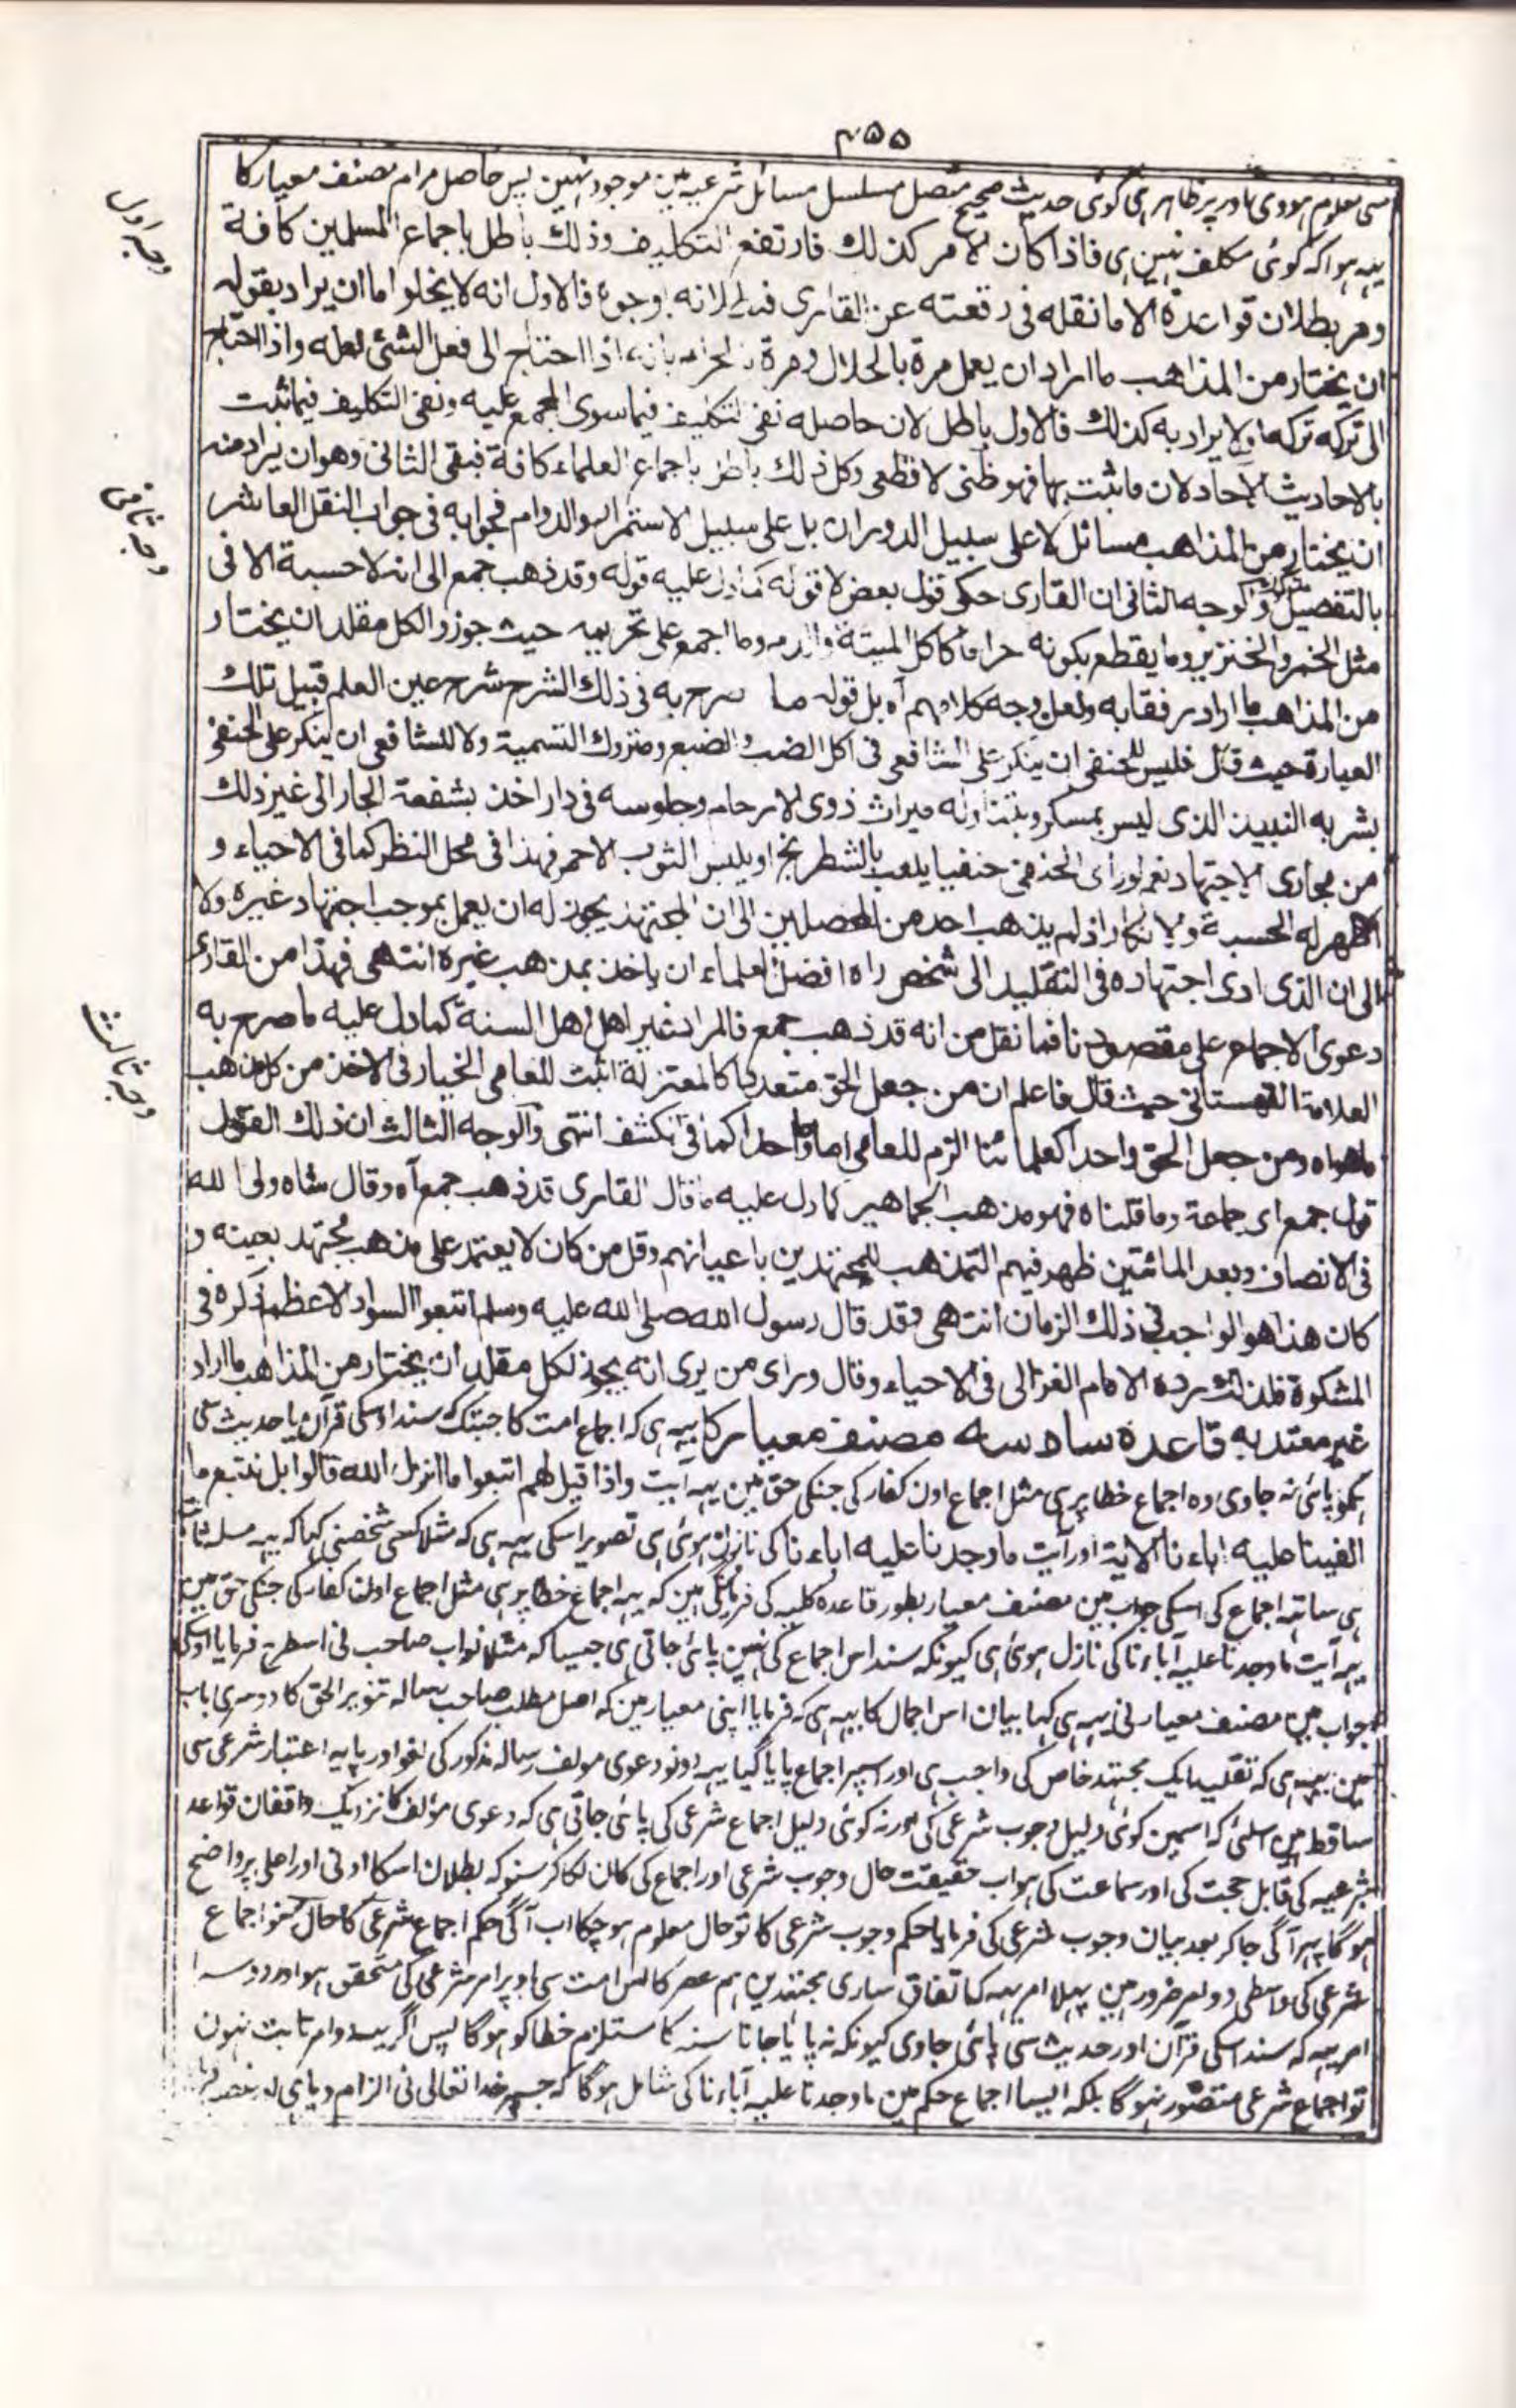 ۴۵۵
سی معلوم ہووی اور پر ظاہر ہی کوئی حدیث صحیح متصل مسلسل مسائل شرعیہ مین موجود نہین پس حاصل مرام مصنف معیار کا
یہہ ہوا کہ کوئی مکلف نہین ہی فاذا كان الامر كذلك فارتفع التكليف وذلك باطل باجماع المسلمين كافة
وجہ اول
وهر بطلان قواعده الا ما نقله فی رقعته عن القاری فذلك لانه بوجوه فالاول انه لا يخلو اما ان يراد بقوله
ان يختار من المذاهب ما اراد ان يعمل مرة بالحلال ومرة بالحرام بانه اذا احتاج الى فعل الشئ فعله واذا احتاج
الى تركه تركه اولا يراد به كذلك فالاول باطل لان حاصله نفی التكليف فيما سوى المجمع عليه ونفی التكليف فيما ثبت
بالاحاديث الآحاد لان ما ثبت بها فهو ظنی لا قطعی وكل ذلك باطل باجماع العلماء كافة فبقی الثانی وهو ان يراد منه
ان يختار من المذاهب مسائل لا على سبيل الدوران بل على سبيل الاستمرار والدوام فجوابه فی جواب النقل العاشر
وجہ ثانی
بالتفصيل والوجه الثانی ان القاری حكى قول بعض لا قوله كما دل عليه قوله وقد ذهب جمع الى انه لا حسبة الا فی
مثل الخمر والخنزير وما يقطع بكونه حراما كاكل الميتة والدم وما اجمع على تحريمه حيث جوزوا لكل مقلد ان يختار
من المذاهب ما اراد رفقا به ولعل وجه كلامهم آه بل قوله ما صرح به فی ذلك الشرح شرح عين العلم قبيل تلك
العبارة حيث قال فليس للحنفی ان ينكر على الشافعی فی اكل الضب والضبع ومتروك التسمية ولا للشافعی ان ينكر على الحنفی
بشربه النبيذ الذی ليس بمسكر وتناوله ميراث ذوی الارحام وجلوسه فی دار اخذ بشفعة الجار الى غير ذلك
من مجاری الاجتهاد نعم لو رای الحنفی حنفيا يلعب بالشطرنج او يلبس الثوب الاحمر فهذا فی محل النظر كما فی الاحياء و
الاظهر له الحسبة والانكار اذ لم يذهب احد من المحصلين الى ان المجتهد يجوز له ان يعمل بموجب اجتهاد غيره ولا
الى ان الذی ادى اجتهاده فی التقليد الى شخص راه افضل العلماء ان ياخذ بمذهب غيره انتهى فهذا من القاری
دعوى الاجماع على مقصودنا فما نقل من انه قد ذهب جمع فالمراد غير اهل السنة كما دل عليه ما صرح به
العلامة القهستانی حيث قال فاعلم ان من جعل الحق متعددا كالمعتزلة اثبت للعامی الخيار فی الاخذ من كل مذهب
وجہ ثالث
ما هواه ومن جعل الحق واحدا كعلمائنا الزم للعامی اماما واحدا كما فی الكشف انتهى والوجه الثالث ان ذلك القول
قول جمع ای جماعة وما قلناه فهو مذهب الجماهير كما دل عليه ما قال القاری قد ذهب جمع آه وقال شاه ولی الله
فی الانصاف وبعد المائتين ظهر فيهم التمذهب للمجتهدين باعيانهم وقل من كان لا يعتمد على مذهب مجتهد بعينه و
كان هذا هو الواجب فی ذلك الزمان انتهى وقد قال رسول الله صلى الله عليه وسلم اتبعوا السواد الاعظم ذكره فی
المشكوة فلذلك رده الامام الغزالی فی الاحياء وقال ورای من يرى انه يجوز لكل مقلد ان يختار من المذاهب ما اراد
غير معتد به قاعدہ سادسہ مصنف معیار کا یہہ ہی کہ اجماع امت کا جبتک سند اوسکی قرآن یا حدیث سی
ہمکو پائی نہ جاوی وہ اجماع خطا پر ہی مثل اجماع اون کفار کی جنکی حق مین یہہ آیت واذا قيل لهم اتبعوا ما انزل الله قالوا بل نتبع ما
الفينا عليه اباءنا الاية اور آیت ما وجدنا علیہ اباءنا کی نازل ہوئی ہی تصویر اسکی یہہ ہی کہ مثلا کسی شخصنی کہا کہ یہہ مسلہ ثابت
ہی ساتہہ اجماع کی اسکی جواب مین مصنف معیار بطور قاعدہ کلیہ کی فرماتی ہین کہ یہہ اجماع خطا پر ہی مثل اجماع اون کفار کی جنکی حق مین
یہہ آیت ما وجدنا علیہ آباءنا کی نازل ہوئی ہی کیونکہ سند اس اجماع کی نہین پائی جاتی ہی جیسا کہ مثلا نواب صاحب نی اسطرح فرمایا اوسکی
جواب مین مصنف معیار نی یہہ ہی کہا بیان اس اجمال کا یہہ ہی کہ فرمایا اپنی معیار مین کہ اصل مطلب صاحب رسالہ تنویر الحق کا دوسری باب
مین یہہ ہی کہ تقلید ایک مجتہد خاص کی واجب ہی اور اسپر اجماع پایا گیا یہہ دونو دعوی مولف رسالہ مذکور کی لغو اور پایہ اعتبار شرعی سی
ساقط ہین اسلئی کہ اسمین کوئی دلیل وجوب شرعی کی اور نہ کوئی دلیل اجماع شرعی کی پائی جاتی ہی کہ دعوی مؤلف کا نزدیک واقفان قواعد
شرعیہ کی قابل حجت کی اور سماعت کی ہو اب حقیقت حال وجوب شرعی اور اجماع کی کان لگا کر سنو کہ بطلان اسکا ادنی اور اعلی پر واضح
ہوگا پہر آگی جا کر بعد بیان وجوب شرعی کی فرمایا حکم وجوب شرعی کا تو حال معلوم ہو چکا اب آگی حکم اجماع شرعی کا حال سنو اجماع
شرعی کی واسطی دو امر ضرور ہین پہلا امر یہہ کہ اتفاق ساری مجتہدین ہم عصر کا اس امت سی اوپر امر شرعی کی متحقق ہو اور دوسرا
امر یہہ کہ سند اسکی قرآن اور حدیث سی پائی جاوی کیونکہ نہ پایا جانا سند کا مستلزم خطا کو ہوگا پس اگر یہہ دو امر ثابت نہون
تو اجماع شرعی متصور نہوگا بلکہ ایسا اجماع حکم مین ما وجدنا علیہ آباءنا کی شامل ہوگا کہ جسپر خدا تعالی نی الزام دیا ہی